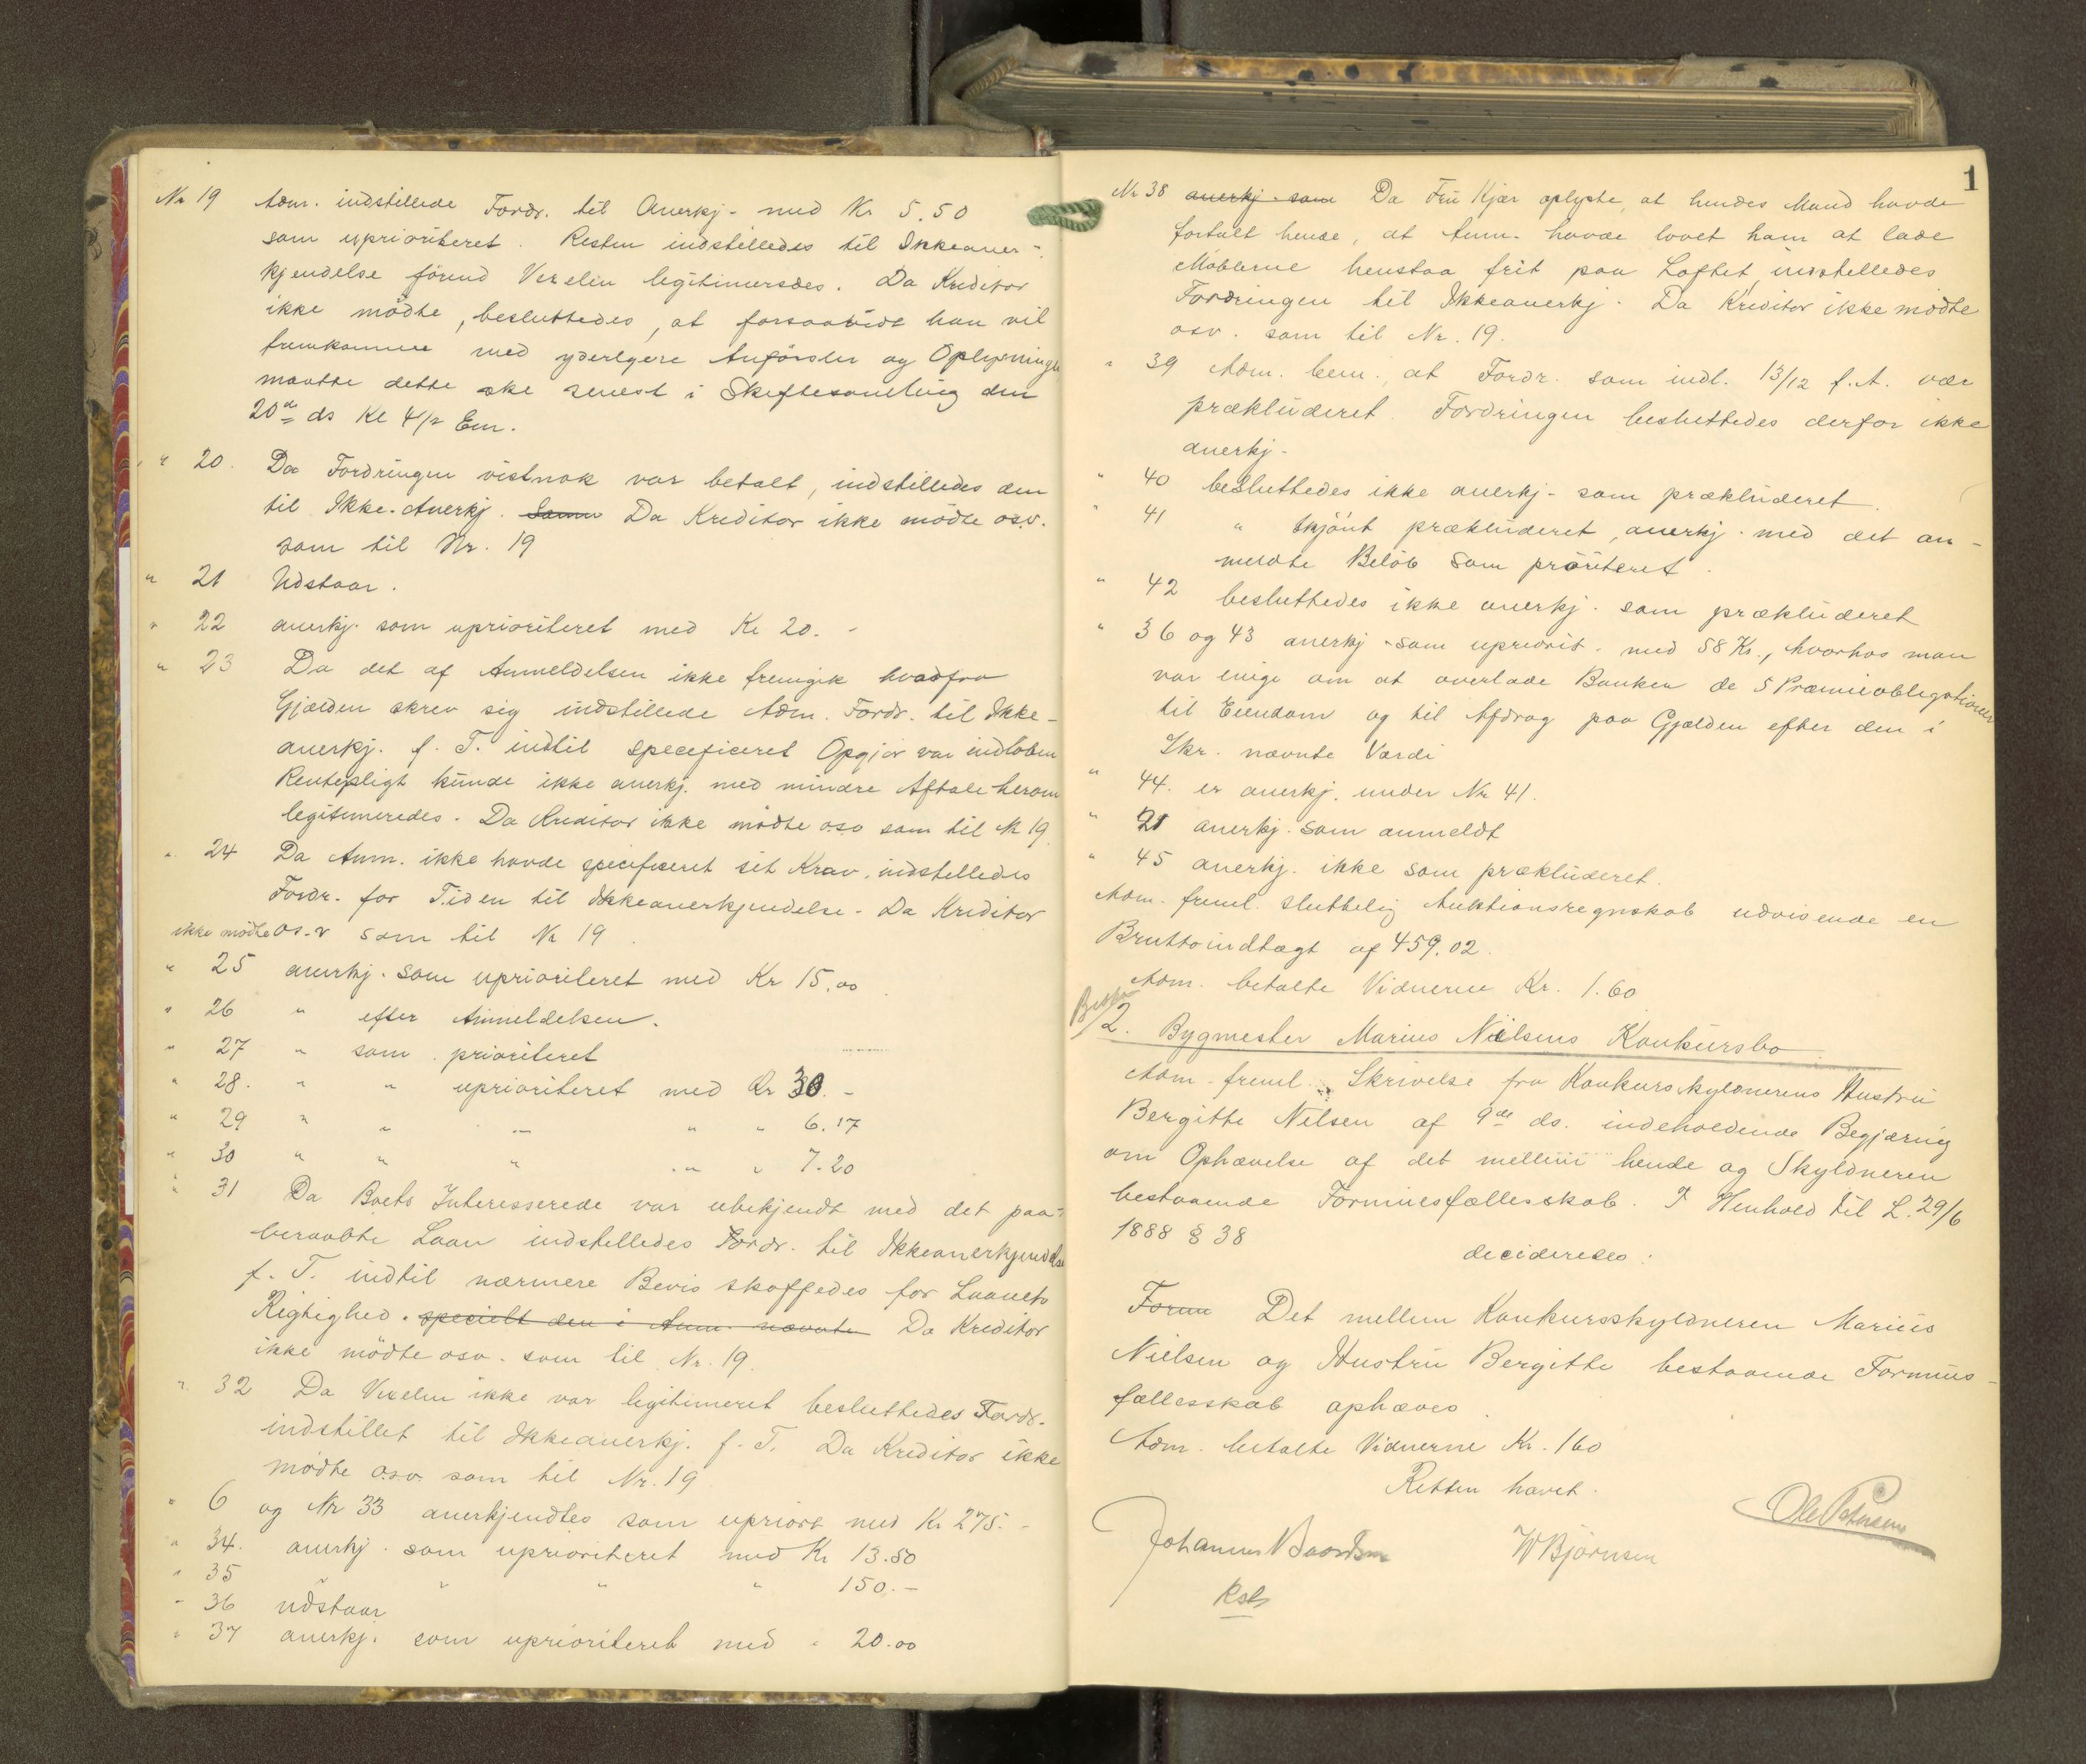 Nr 19 Adm. indstillede Fordr. til Anerkj. med Kr 5.50
som uprioriteret. Resten indstilledes til Ikkeaner-
kjendelse førend Vexelen legitimeredes. Da Kreditor
ikke mödte, besluttedes, at forsaavidt han vil
fremkomme med yderligere Anförsler og Oplysninger
maatte dette ske senest i Skiftesamling den
20de ds Kl 4 1/2 Em.
" 20. Da Fordringen vistnok var betalt, indstilledes den
til Ikke-Anerkj. Samm Da Kreditor ikke mödte osv.
som til Nr. 19
" 21 Udstaar.
" 22 anerkj. som uprioriteret med Kr 20. -
" 23 Da det af Anmeldelsen ikke fremgik hvadfra
Gjælden skrev sig indstillede Adm. Fordr. til Ikke-
anerkj. f. T. indtil specificeret Opgjør var indloben
Rentepligt kunde ikke anerkj. med mindre Aftale herom
legitimeredes. Da Kreditor ikke mödte osv som til Nr 19.
" 24 Da Anm. ikke havde specificeret sit Krav, indstilledes
Fordr. for Tiden til Ikkeanerkjendelse. Da Kreditor
ikke mödte os.v som til Nr 19.
" 25 anerkj. som uprioriteret med Kr 15.00
" 26 " efter Anmeldelsen.
" 27 " som prioriteret
" 28. " " uprioriteret med Kr 30. -
" 29 " " " " " 6.17
" 30 " " " " " 7.20
" 31 Da Boets Interesserede var ubekjendt med det paa-
beraabte Laan indstilledes Fordr. til Ikkeanerkjendelse
f. T. indtil nærmere Bevis skaffedes for Laanets
Rigtighed. specielt den i Anm. nævnte Da Kreditor
ikke mödte osv. som til Nr. 19.
" 32 Da Vexelen ikke var legitimeret besluttedes Fordr.
indstillet til Ikkeanerkj. f. T. Da Kreditor ikke
mødte osv. som til Nr. 19
" 6 og Nr 33 anerkjendtes som upriort med Kr 275. -
" 34. anerkj. som uprioriteret med Kr 13.50
" 35 " " " " 150. -
" 36 udstaar
" 37 anerkj. som uprioriteret med " 20.00
1
Nr 38 anerkj. som Da Fru Kjær oplyste, at hendes Mand havde
fortalt hende, at Anm. havde lovet ham at lade
Möblerne henstaa frit paa Loftet, indstilledes
Fordringen til Ikkeanerkj. Da Kreditor ikke mödte
osv. som til Nr. 19.
" 39 Adm. bem., at Fordr. som indl. 13/12 f. A. var
prækluderet. Fordringen besluttedes derfor ikke
anerkj.
" 40 besluttedes ikke anerkj. som prækluderet.
" 41 " skjönt prækluderet, anerkj. med det an-
meldte Belöb som prioriteret.
" 42 besluttedes ikke anerkj. som prækluderet
" 36 og 43 anerkj. som upriorit. med 58 Kr., hvorhos man
var enige om at overlade Banken de 5 Præmieobligationer
til Eiendom og til Afdrag paa Gjælden efter den i
Skr. nævnte Værdi
" 44. er anerkj. under Nr 41.
" 21 anerkj. som anmeldt
" 45 anerkj. ikke som prækluderet.
Adm. freml. sluttelig Auktionsregnskab udvisende en
Bruttoindtægt af 459.02.
Adm. betalte Vidnerne Kr. 1.60
2. Bygmester Marius Nielsens Konkursbo.
Adm. freml. Skrivelse fra Konkursskyldnerens Hustru
Bergitte Nilsen af 9de ds. indeholdende Begjæring
om Ophævelse af det mellem hende og Skyldneren
bestaaende Formuesfællesskab. I Henhold til L. 29/6
1888 § 38
decideredes:
Formu Det mellem Konkursskyldneren Marius
Nielsen og Hustru Bergitte bestaaende Formues-
fællesskab ophæves.
Adm. betalte Vidnerne Kr. 160
Retten hævet.
Ole Petersen
Johannes W Björnsen